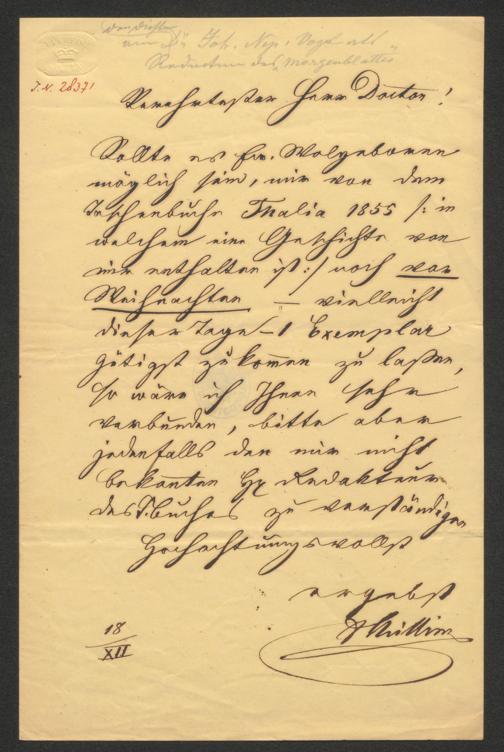 an Dr Joh. Nep. Vogl als
Redacteur des „Morgenblattes"
I.N. 28371
Verehrtester Herr Doctor!
Sollte es Ew. Wolgeboren
möglich sein, mir von dem
Taschenbuche Thalia 1855 /: in
welchem eine Geschichte von
mir enthalten ist :/ noch vor
Weihnachten – vielleicht
dieser Tage – 1 Exemplar
gütigst zukommen zu lassen,
so wäre ich Ihnen sehr
verbunden, bitte aber
jedenfalls den mir nicht
bekanten Hr Redakteur
des T.buches zu verständigen
Hochachtungsvollst
ergebst
18
XII